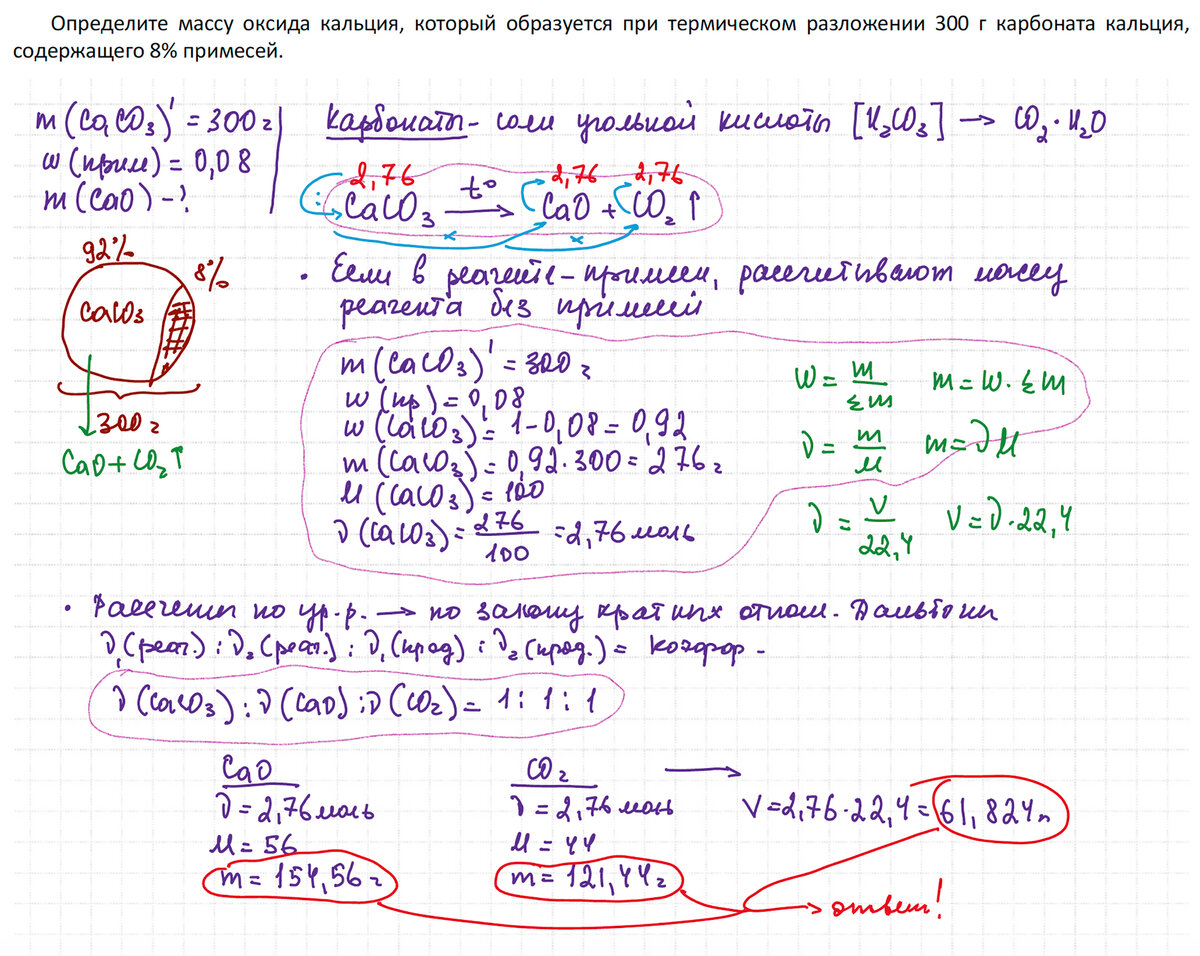 Определите массу оксида кальция, который образуется при термическом разложении 300 г карбоната кальция,
содержащего 8% примесей.
m(CaCO₃)' = 300 г
w(прим) = 0,08
m(CaO) - ?
Карбонаты - соли угольной кислоты [H₂CO₃] → CO₂·H₂O
2,76 2,76 2,76
: CaCO₃ t° → CaO + CO₂ ↑
× ×
92%
8%
CaCO₃
300 г
CaO + CO₂ ↑
• Если в реагенте - примеси, рассчитывают массу
реагента без примесей
m(CaCO₃)' = 300 г
w(пр) = 0,08
w(CaCO₃) = 1 - 0,08 = 0,92
m(CaCO₃) = 0,92 · 300 = 276 г
M(CaCO₃) = 100
ν(CaCO₃) = 276/100 = 2,76 моль
W = m/Σm m = W · Σm
ν = m/M m = νM
ν = V/22,4 V = ν · 22,4
• Рассчеты по ур. р. → по закону кратных отнош. Дальтона
ν₁(реаг.) : ν₂(реаг.) : ν₁(прод) : ν₂(прод.) = коэфф -
ν(CaCO₃) : ν(CaO) : ν(CO₂) = 1 : 1 : 1
CaO
ν = 2,76 моль
M = 56
m = 154,56 г
CO₂ →
ν = 2,76 моль
M = 44
m = 121,44 г
V = 2,76 · 22,4 = 61,824 л
→ ответ!